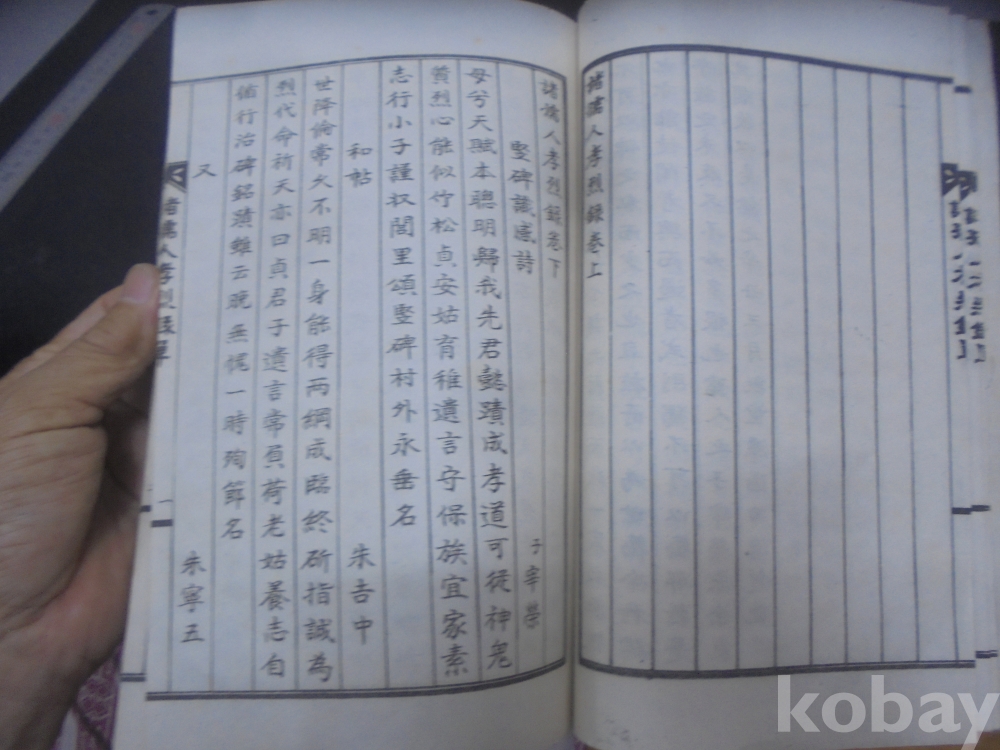 孺人孝烈錄卷上
諸孺人孝烈錄卷下
竪碑識感詩
子宰榮
母兮天賦本聰明歸我先君懿蹟成孝道可徒神鬼
質烈心能似竹松貞安姑育稚遺言守保族宜家素
志行小子謹收閭里頌竪碑村外永垂名
和帖
朱吉中
世降倫常久不明一身能得兩綱成臨終斫指誠為
烈代命祈天亦曰貞君子遺言常負荷老姑養志自
循行治碑銘蹟雖云晚無愧一時殉節名
又
朱寧五
孺人孝烈錄單
一
kobay